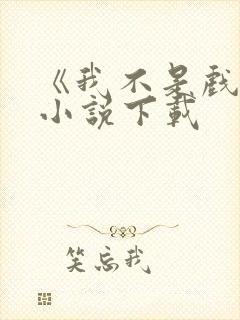 《我不是戲
小說下載
笑忘我